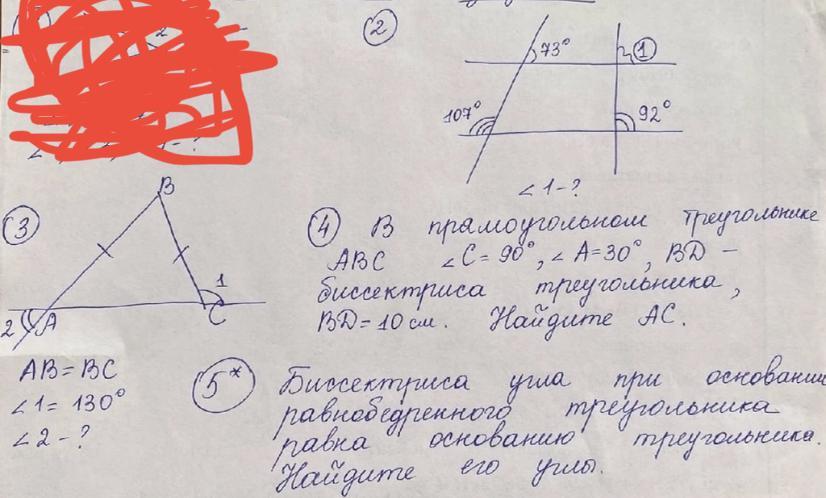 2
73°
1
107°
92°
∠1-?
3
B
1
2
A
C
AB=BC
∠1=130°
∠2-?
4 В прямоугольном треугольнике
ABC ∠C=90°, ∠A=30°, BD –
биссектриса треугольника,
BD=10 см. Найдите AC.
5* Биссектриса угла при основании
равнобедренного треугольника
равна основанию треугольника.
Найдите его углы.